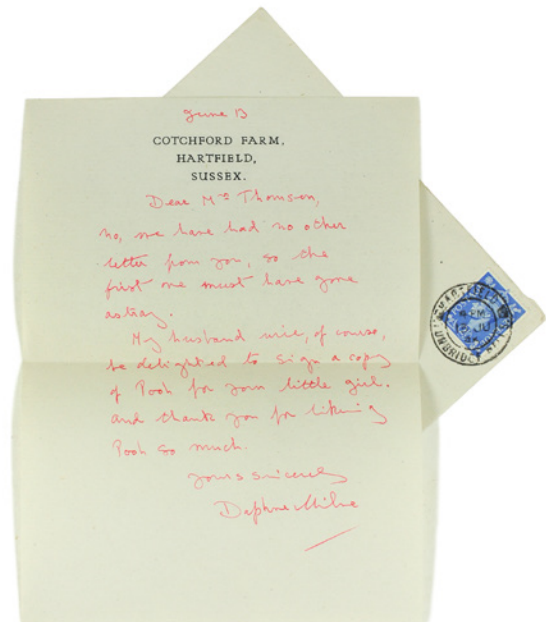 June 13
COTCHFORD FARM,
HARTFIELD,
SUSSEX.
Dear Mrs Thomson,
No, we have had no other
letter from you, so the
first one must have gone
astray.
My husband will, of course,
be delighted to sign a copy
of Pooh for your little girl.
and thank you for liking
Pooh so much.
yours sincerely
Daphne Milne
HARTFIELD
PM
JU
TUNBRIDGE WELLS